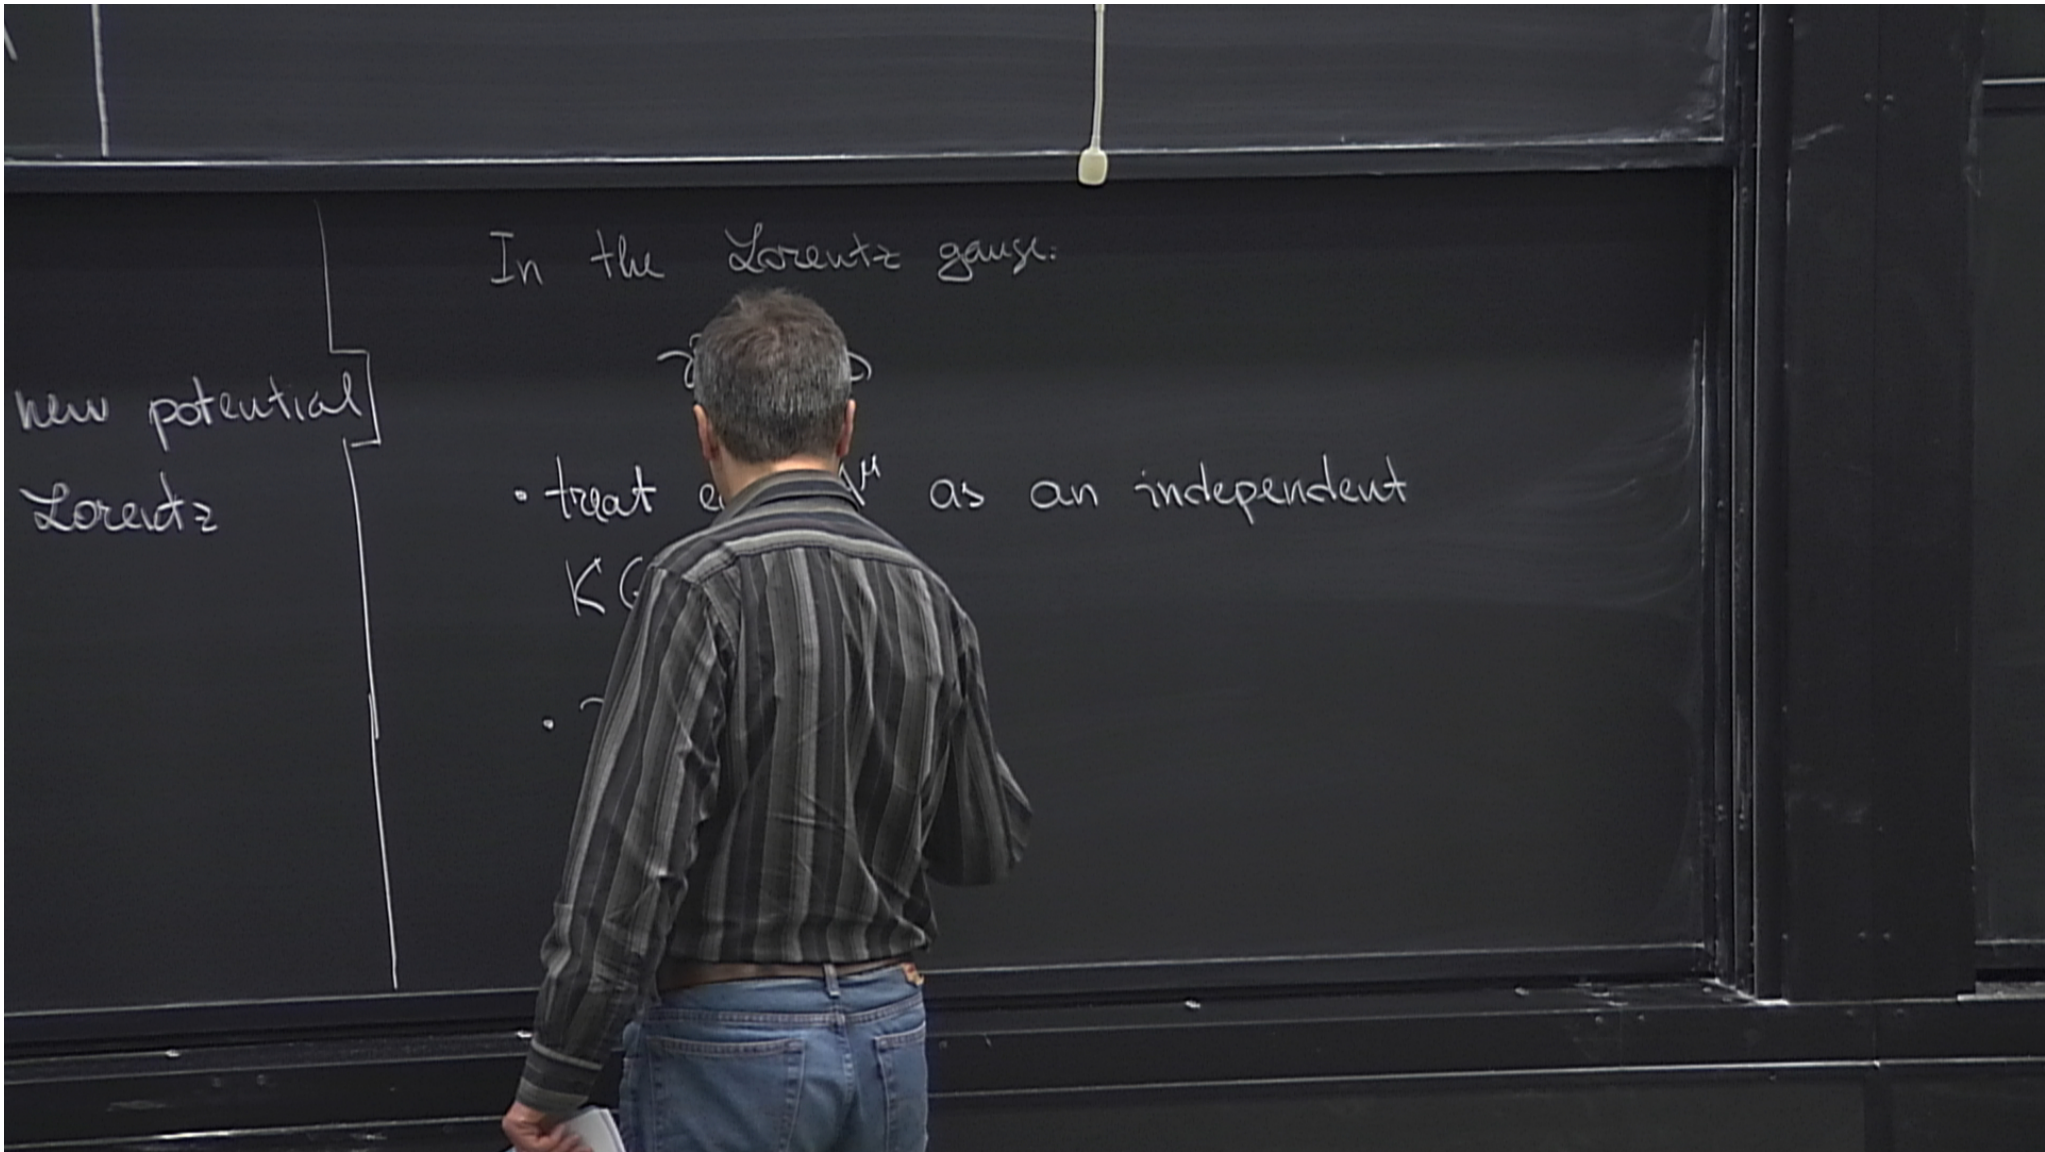 new potential
Lorentz
In the Lorentz gauge:
• treat as an independent
KG
•